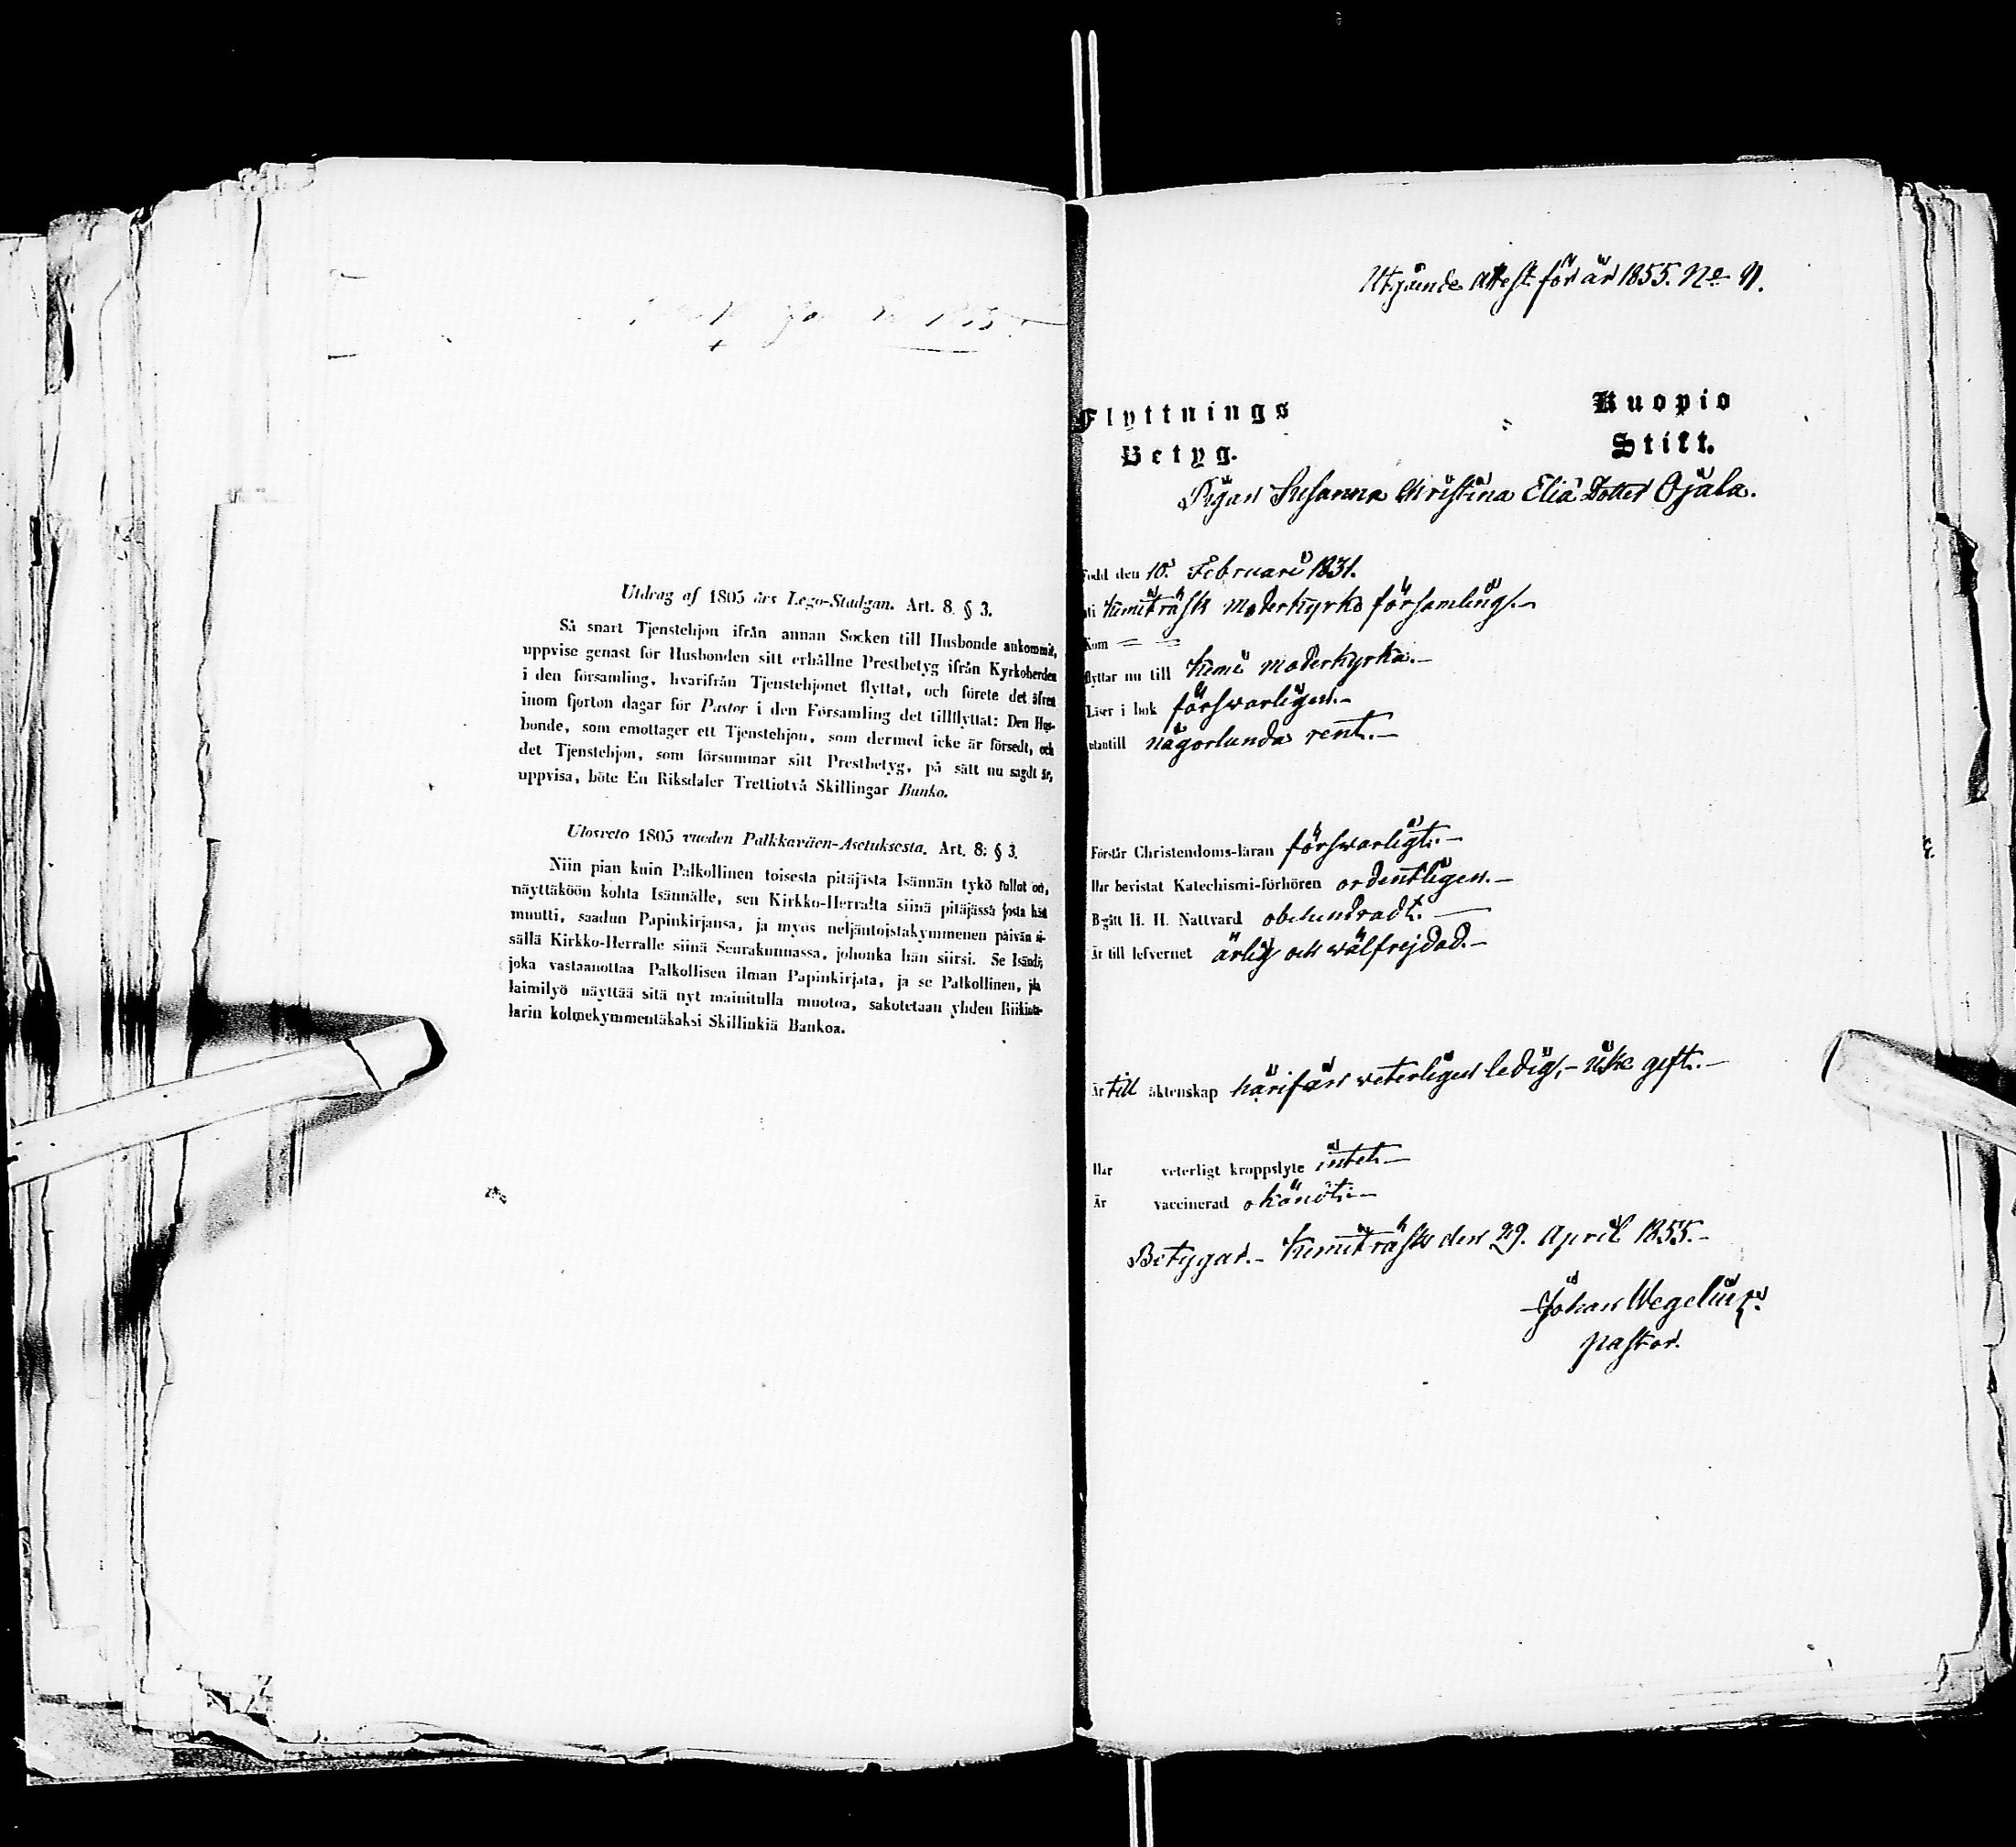 Utdrag af 1805 års Lego-Stadgan. Art. 8. § 3.
Så snart Tjenstehjon ifrån annan Socken till Husbonde ankommit,
uppvise genast för Husbonden sitt erhållne Prestbetyg ifrån Kyrkoherden
i den församling, hvarifrån Tjenstehjonet flyttat, och förete det äfven
inom fjorton dagar för Pastor i den Församling det tillflyttat: Den Hus-
bonde, som emottager ett Tjenstehjon, som dermed icke är försedt, och
det Tjenstehjon, som försummar sitt Prestbetyg, på sätt nu sagdt är,
uppvisa, böte En Riksdaler Trettiotvå Skillingar Banko.
Ulosveto 1805 vuoden Palkkaväen-Asetuksesta. Art. 8: § 3.
Niin pian kuin Palkollinen toisesta pitäjästä Isännän tykö tullut on,
näyttäköön kohta Isännälle, sen Kirkko-Herralta siinä pitäjässä josta hän
muutti, saadun Papinkirjansa, ja myös neljäntoistakymmenen päivän si-
sällä Kirkko-Herralle siinä Seurakunnassa, johonka hän siirsi. Se Isändä,
joka vastaanottaa Palkollisen ilman Papinkirjata, ja se Palkollinen, jka
laimilyö näyttää sitä nyt mainitulla muotoa, sakotetaan yhden Riikinta-
larin kolmekymmentäkaksi Skillinkiä Bankoa.
Utgående Attest för år 1855. No
Flyttnings Kuopio
Betyg. Stift.
Pigan Susanna Christina Elia Dotter Ojala.
Född den 10. Februari 1831.
uti Kemiträsk Moderkyrko församling.-
Kom = =
flyttar nu till Kemi moderkyrka.-
Läser i bok förswarligen.-
utantill någorlunda rent.-
Förstår Christendoms-läran förswarligt.-
Har bevistat Katechismi-förhören ordentligen.-
Begått H. H. Nattvard obehindradt.-
Är till lefvernet ärlig och wälfrejdad.-
Är till äktenskap härifrån weterligen ledig,- icke gift.-
Har veterligt kroppslyte intet.-
Är vaccinerad okändt.-
Betygar.- Kemiträsk den 29. April 1855.-
Johan Wegelius.
pastor.